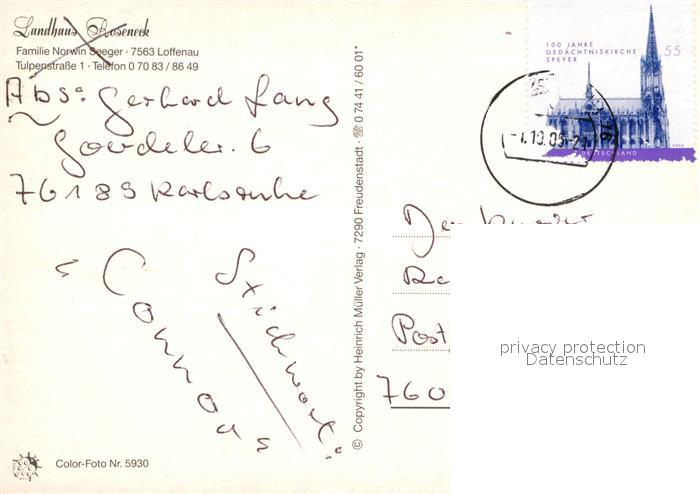 Landhaus Roseneck
Familie Norwin Seeger · 7563 Loffenau
Tulpenstraße 1 · Telefon 0 70 83 / 86 49
Abs: Gerhard Lang
Goerdeler. 6
76189 Karlsruhe
Stichwort:
"Connors"
© Copyright by Heinrich Müller Verlag · 7290 Freudenstadt · ☏ 0 74 41 / 60 01*
Color-Foto Nr. 5930
100 JAHRE
GEDÄCHTNISKIRCHE
SPEYER
55
DEUTSCHLAND
2004
Der
Post
760
privacy protection
Datenschutz